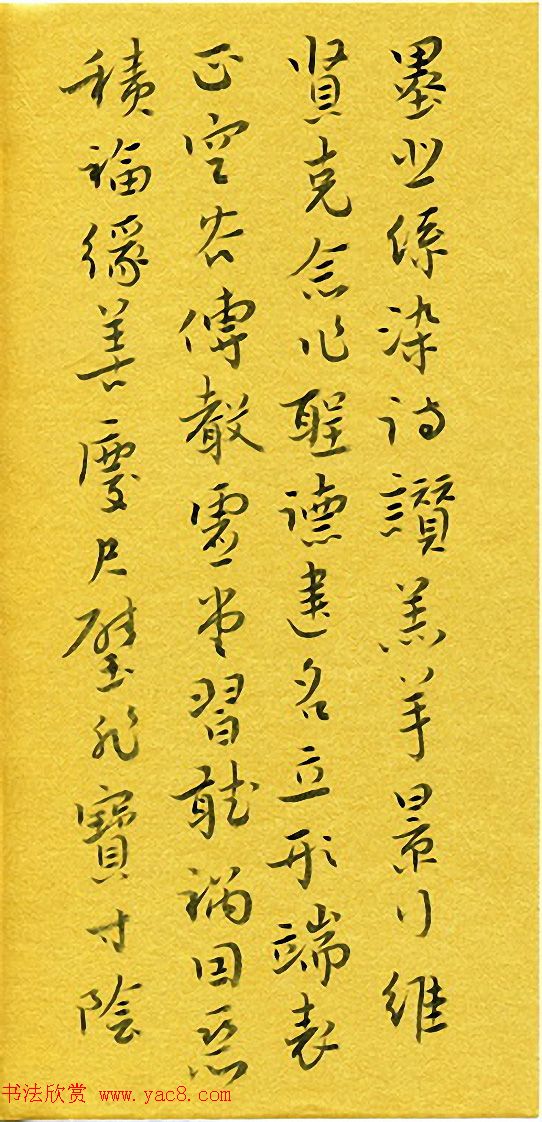 墨悲絲染詩讚羔羊景行維
賢克念作聖德建名立形端表
正空谷傳教虛堂習聽禍因惡
積福緣善慶尺璧非寶寸陰
书法欣赏 www.yac8.com